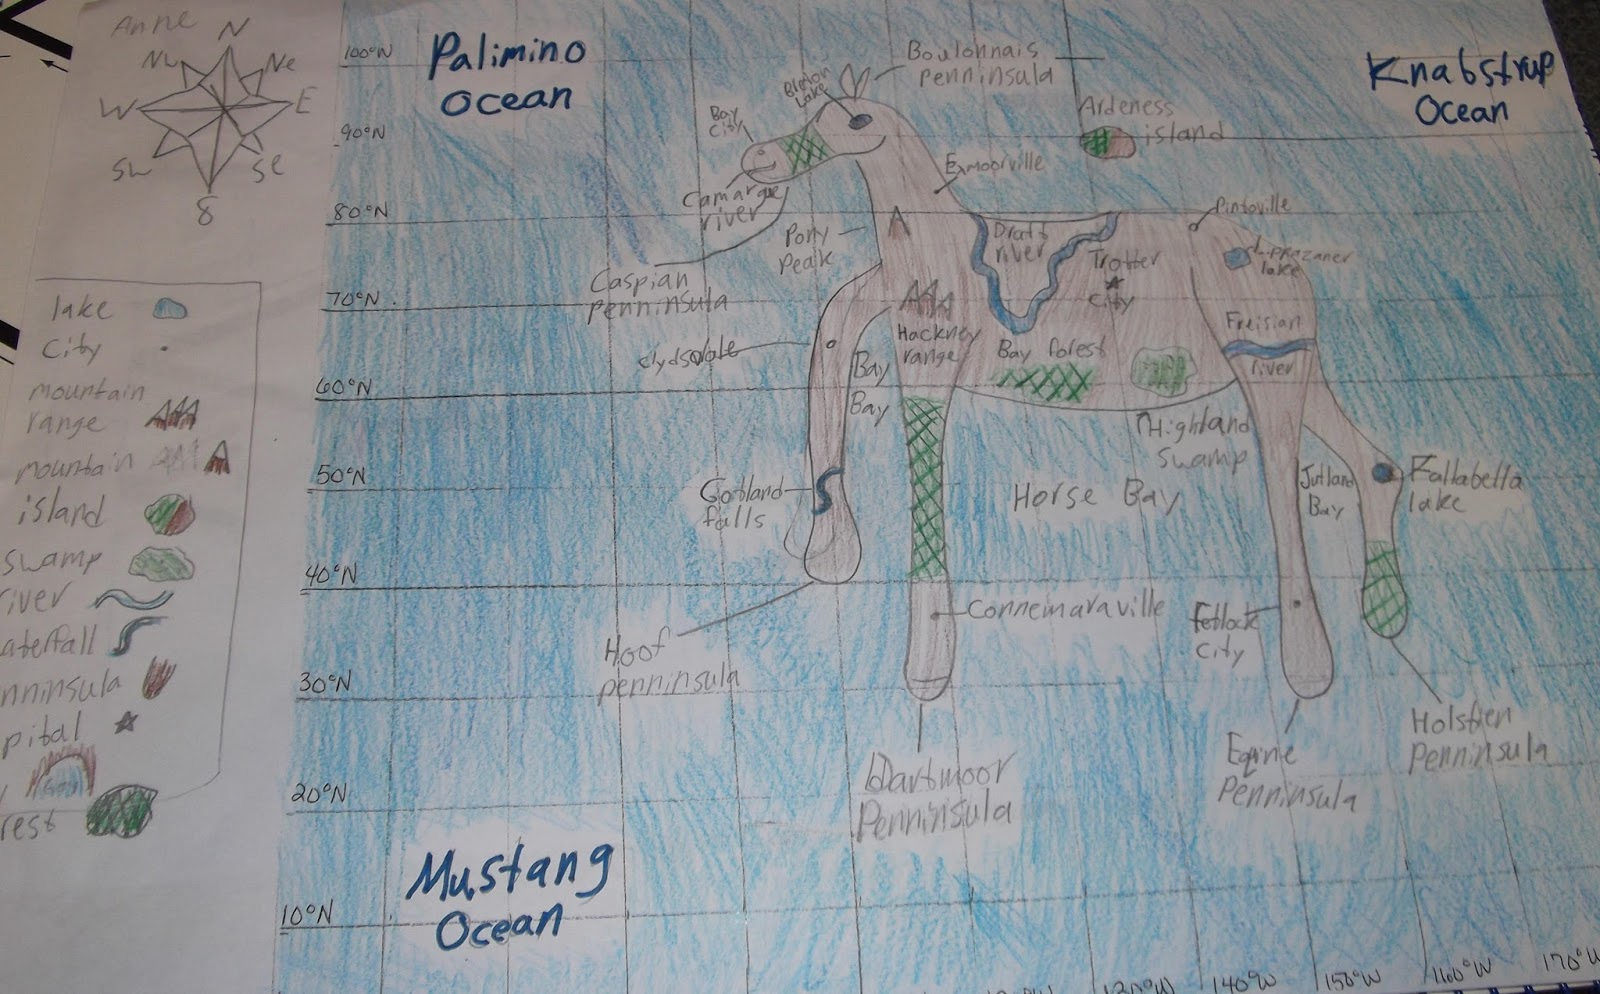 Anne
N
Nw
Ne
W
E
Sw
Se
S
lake
city
mountain
range
mountain
island
swamp
river
aterfall
nninsula
pital
rest
100°N
90°N
80°N
70°N
60°N
50°N
40°N
30°N
20°N
10°N
140°W
150°W
160°W
170°W
Palimino
Ocean
Knabstrup
Ocean
Mustang
Ocean
Boulonnais
penninsula
Lake
Bay
City
Ardeness
island
Exmoorville
Camargue
river
Pony
Peak
Caspian
penninsula
Draft
river
Trotter
City
Pintoville
lake
Hackney
range
Bay forest
Freisian
river
Clydsdale
Bay
Bay
Highland
swamp
Gotland
falls
Horse Bay
Jutland
Bay
Fallabella
lake
Connemaraville
Fetlock
City
Hoof
penninsula
Dartmoor
Penninsula
Eqine
Penninsula
Holstien
Penninsula